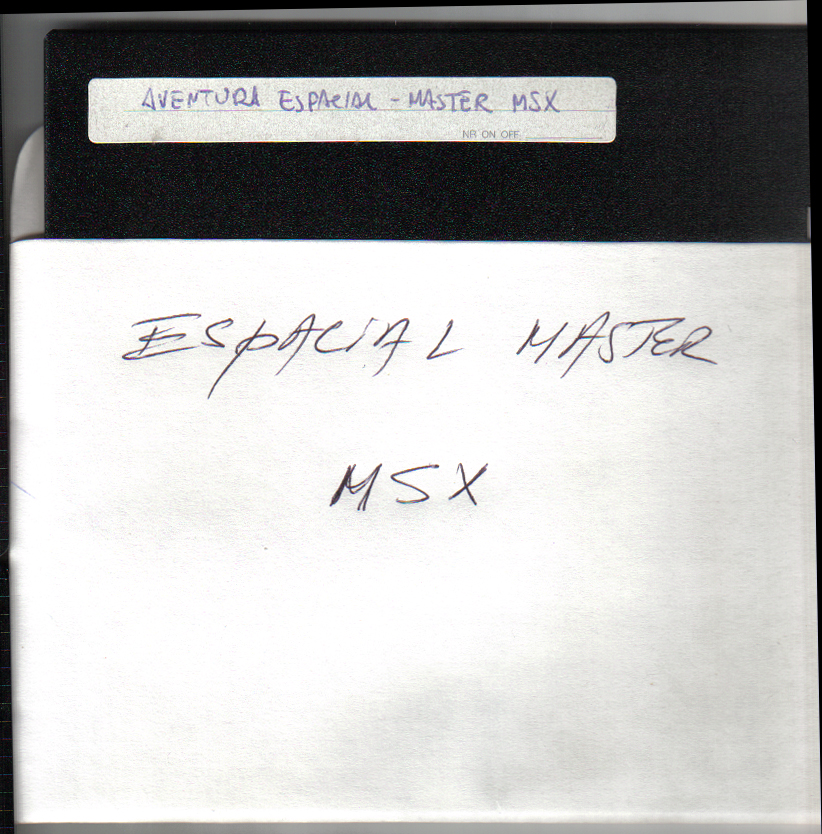 AVENTURA ESPACIAL - MASTER MSX
NR ON OFF
ESPACIAL MASTER
MSX